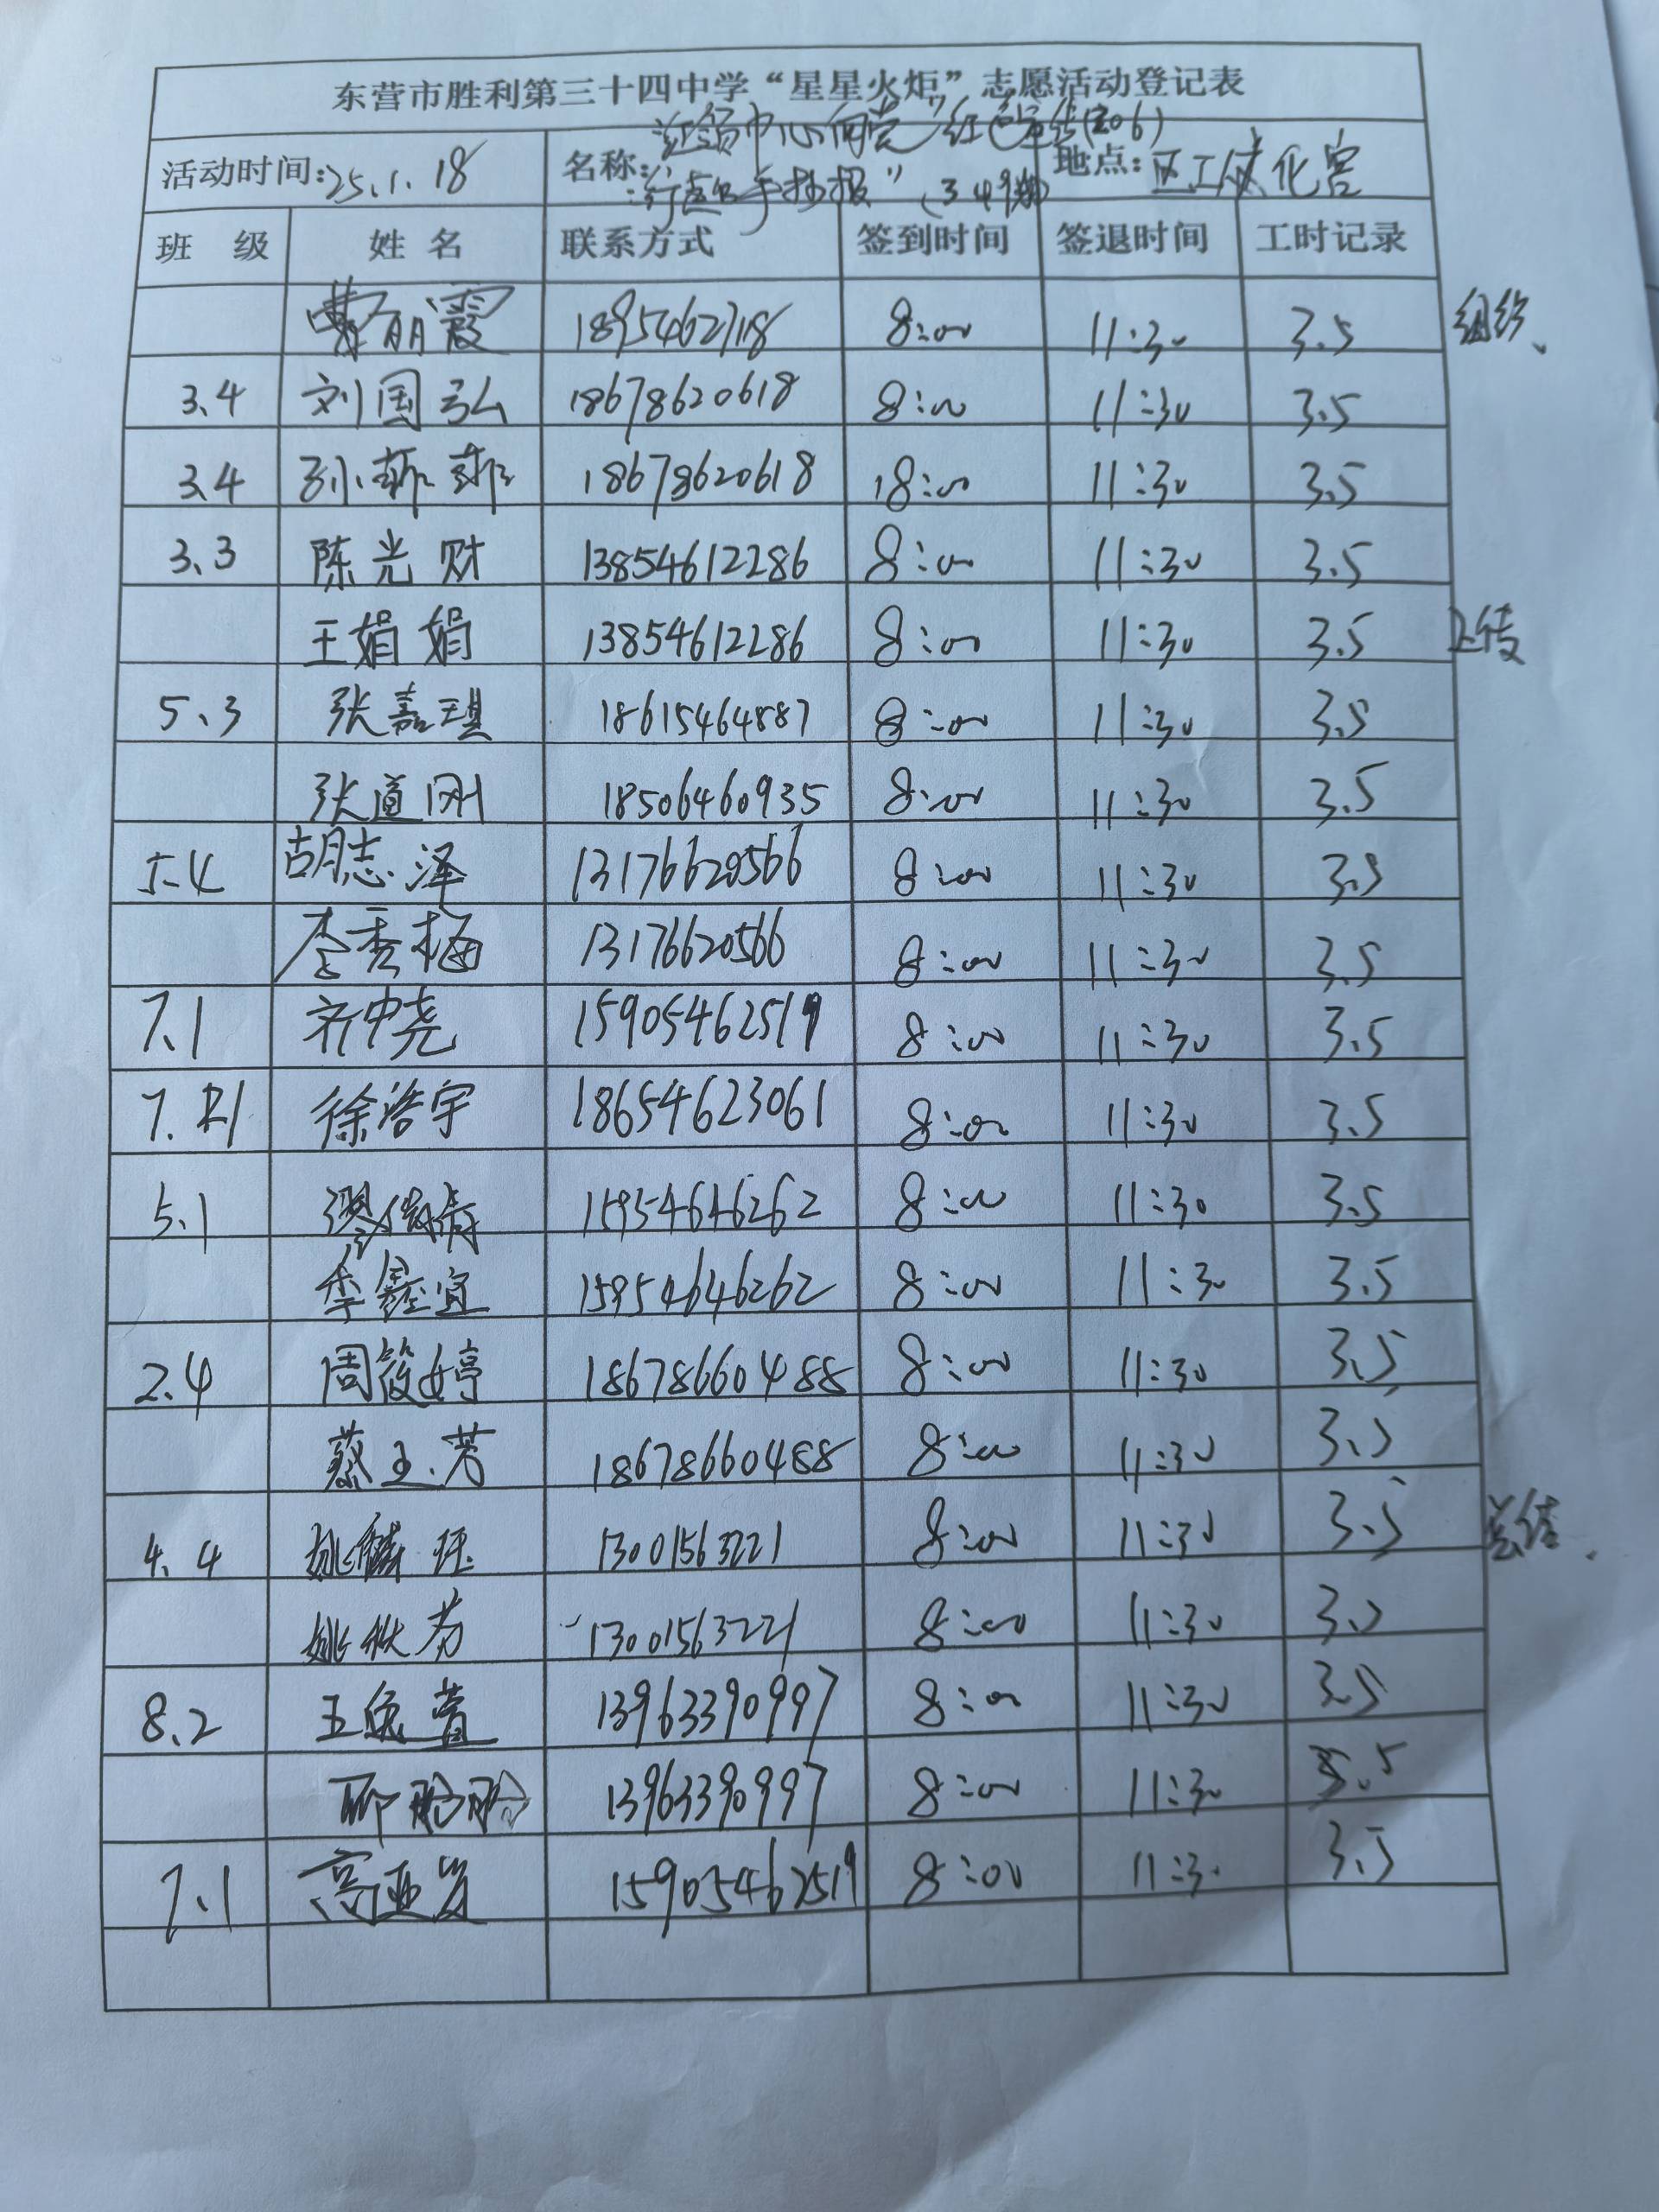 东营市胜利第三十四中学“星星火炬”志愿活动登记表
活动时间:25.1.18 名称: 红领巾心向党”红色宣传(206) 手抄报” (349期) 地点: 区工文化宫
班 级 姓 名 联系方式 签到时间 签退时间 工时记录
霞 18954627118 8:00 11:30 3.5 组织、
3.4 刘国弘 18678620618 8:00 11:30 3.5
3.4 孙菲菲 18678620618 18:00 11:30 3.5
3.3 陈光财 13854612286 8:00 11:30 3.5
王娟娟 13854612286 8:00 11:30 3.5 上传
5.3 张嘉琪 18615464887 8:00 11:30 3.5
张道刚 18506460935 8:00 11:30 3.5
5.4 胡志泽 13176620566 8:00 11:30 3.5
李秀梅 13176620566 8:00 11:30 3.5
7.1 齐中尧 15905462519 8:00 11:30 3.5
7.1 徐浩宇 18654623061 8:00 11:30 3.5
5.1 15954646262 8:00 11:30 3.5
李鑫宜 15954646262 8:00 11:30 3.5
2.4 周筱婷 18678660488 8:00 11:30 3.5
蔡玉芳 18678660488 8:00 11:30 3.5
4.4 姚麟珏 13001563221 8:00 11:30 3.5
姚秋芳 13001563221 8:00 11:30 3.5
8.2 王逸萱 13963390997 8:00 11:30 3.5 总结、
13963390997 8:00 11:30 3.5
7.1 高亚岁 15905462519 8:00 11:30 3.5